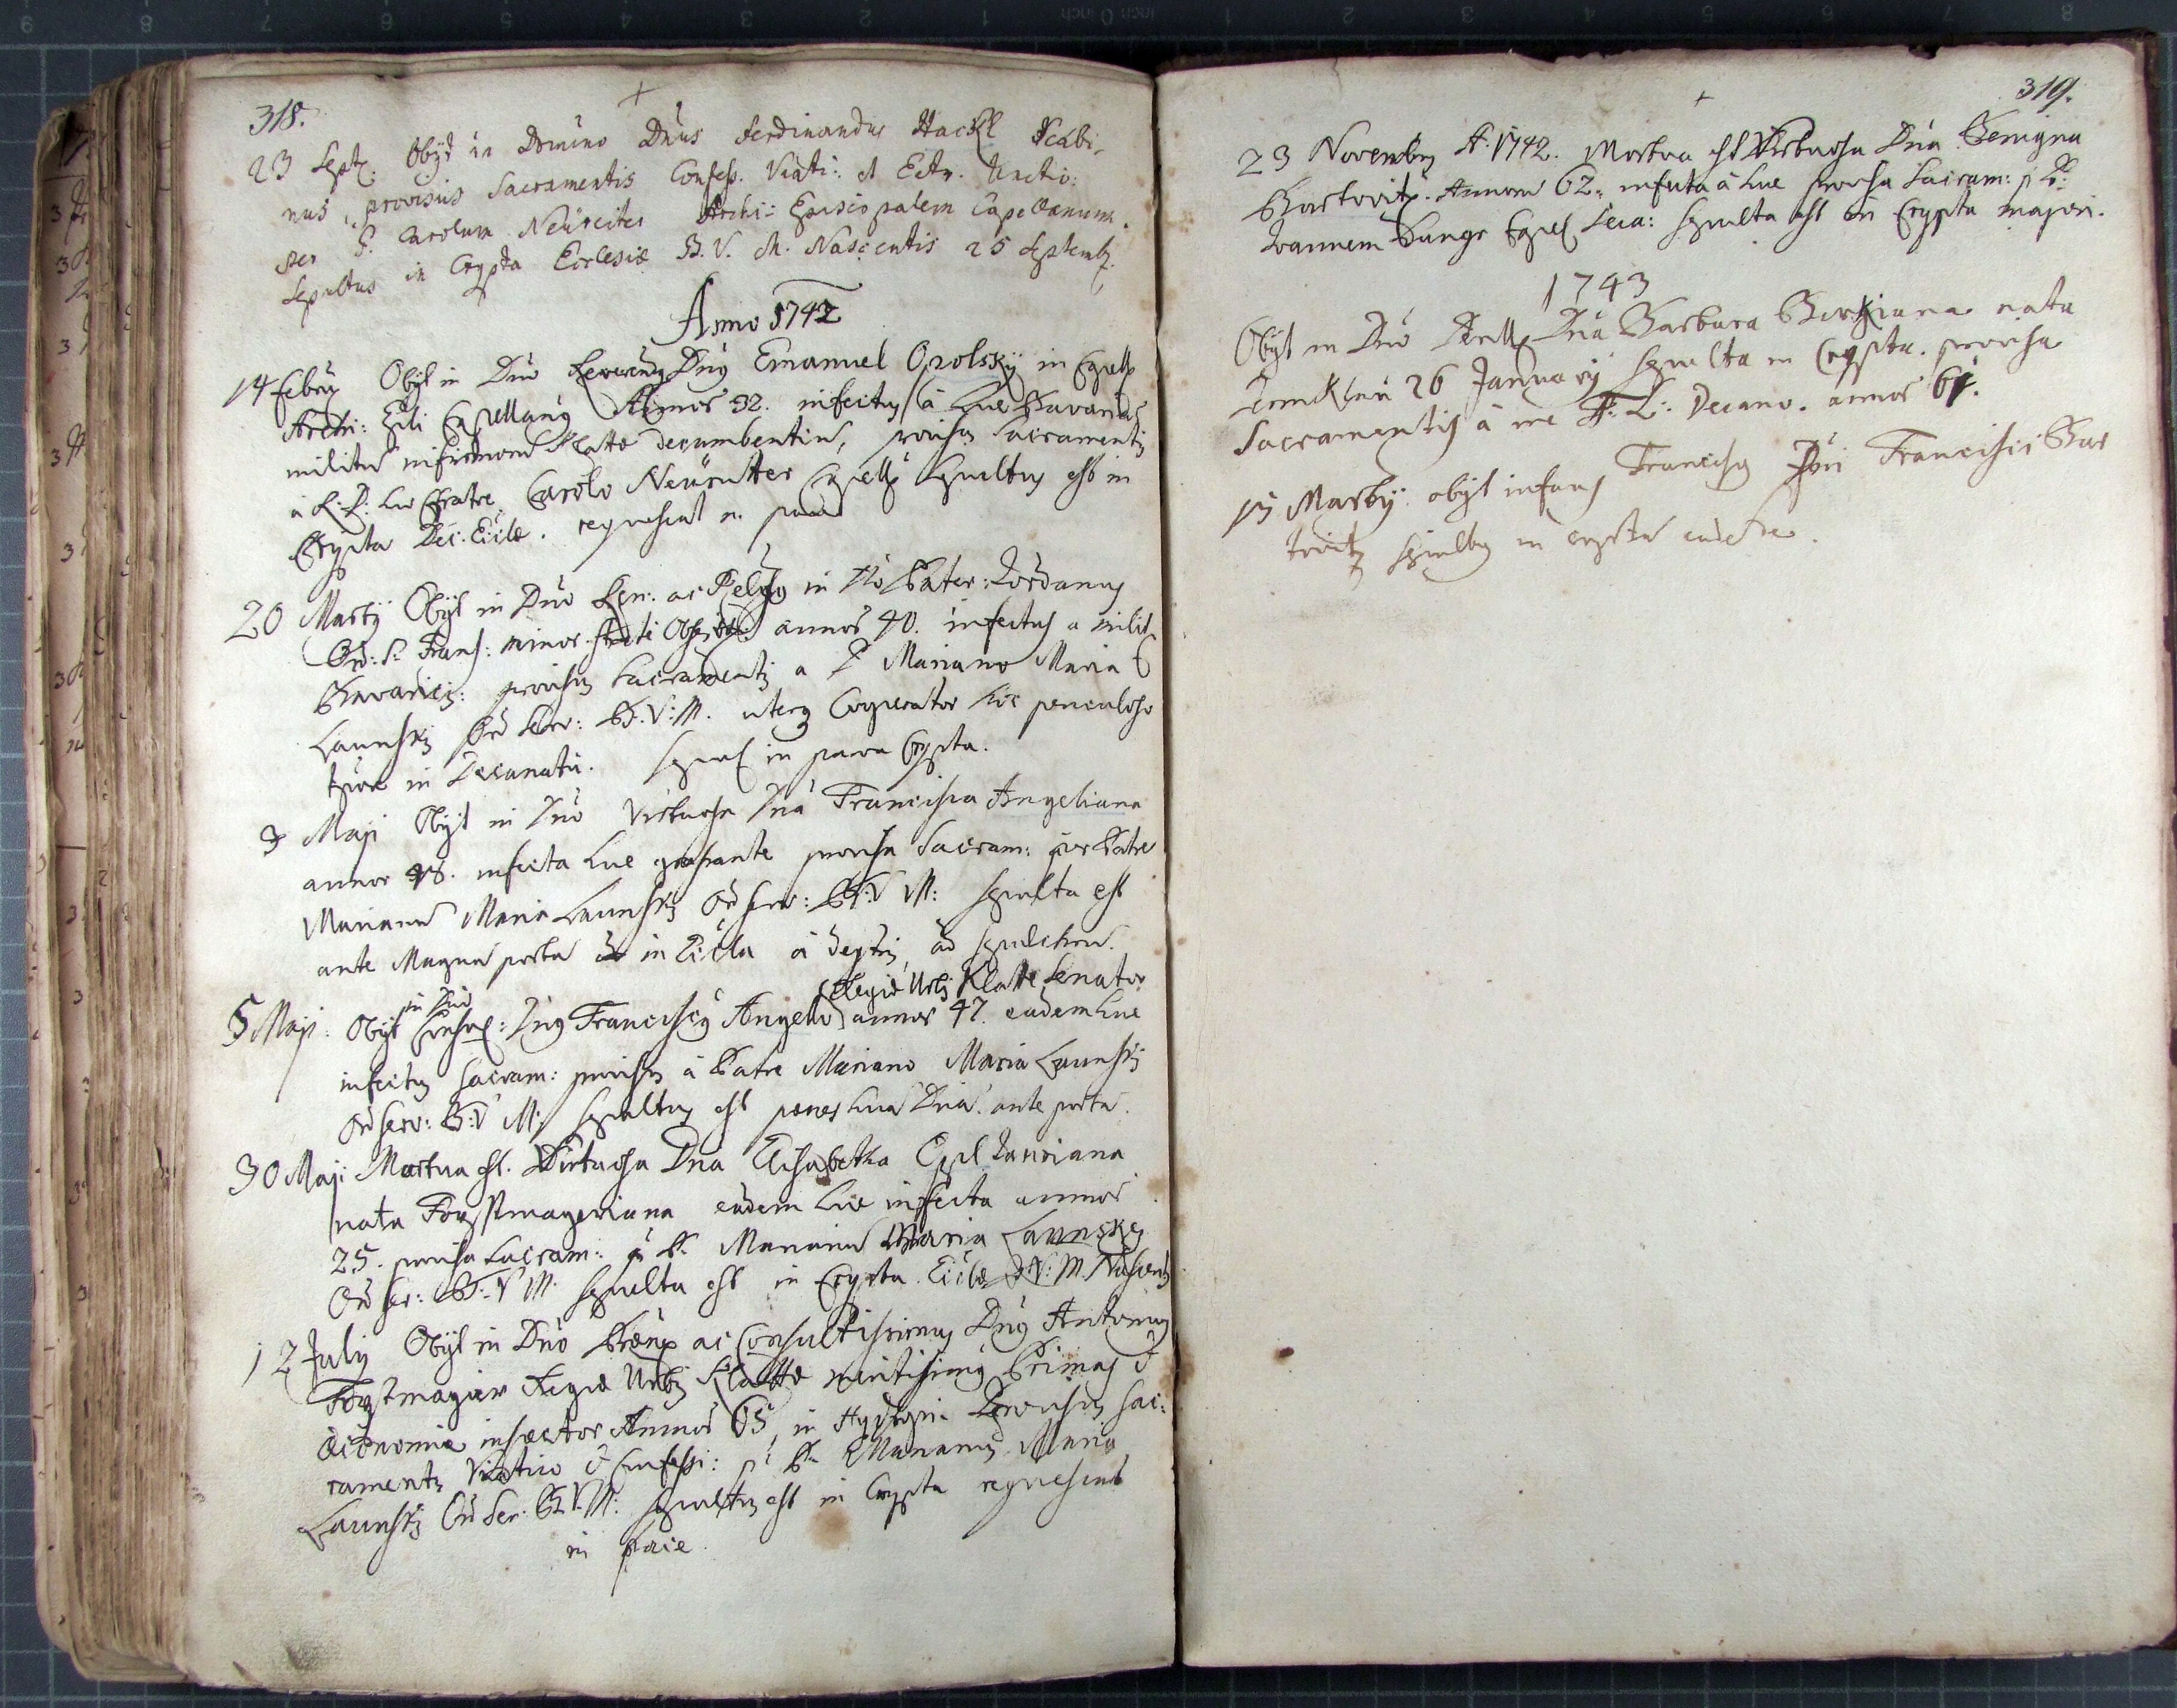 318.
23 Sept. Obijt in Domino Dnus Ferdinandus Hackl Scabi-
nus, provisus Sacramentis Confess. Viati: et Extr. Unctio:
per P. Carolum Neüreiter Archi-Episcopalem Capellanum.
Sepultus in Crypta Ecclesiæ B. V. M. Nascentis 25 Septemb.
Anno 1742
14 Febru Obijt in Dno Dnus Emanuel Opolskÿ in
Archi: Annor 32. infectus à Lue Bavarica
militu infirmoru decumbentiu, provisus Sacramentis
à Fratre Carolo Neürutter Capell: sepultus est in
Crypta Dec: Eccle. requiescat in pace
20 Martij Obijt in Dno Ven: ac Relgs in Pater Jordanus
Ord: S. Franc: minor annor 40. infectus a milit.
Bavaricis: provisus Sacramentis a P Mariano Maria
Launsky Ord Serv: B:V:M. Cooperator hoc periculoso
in Decanatu. in parva Crypta.
3 Maji Obijt in Dno Virtuosa Dna Francisca Angeliana
annor infecta Lue grassante provisa Sacram: per Patre
Marianu Maria Launsky Ord Serv: B:V M: sepulta est
ante Magna porta in Eccla à dextris, ad
Regiæ Urbis Klattæ Senator
in Dno
5 Maji. Obijt Dnus Franciscus Angelus annor 47. eadem Lue
infectus Sacram: provisus à Patre Mariano Maria Launsky
Ord Serv: B:V M: sepultus est penes sua Dna. ante porta.
30 Maji Mortua est. Virtuosa Dna Elisabetha
nata Forstmayeriana eadem Lue infecta annor
25. provisa Sacram: à P. Marianu Maria Launsky
Ord Ser: B:V M. sepulta est in Crypta Eccle B:V:M. Nascentis
12 Julij Obijt in Dno ac Consultissimus Dnus Antonius
Forstmayer Regiæ Urbis Klattæ Primas &
æconomiæ inspector Annor 65, in Provisus Sac:
ramentis Viatico & Confessi: p P. Marianus Maria
Launsky Ord Ser. B:V.M: sepultus est in Crypta requiescat
in pace.
319.
23 Novembris A. 1742. Mortua est Virtuosa Dna Benigna
Bartovitz. Annoru 62. infecta à Lue provisa Sacram: p P:
Joannem sepulta est in Crypta majori.
1743
Obijt in Dno Dna Barbara nata
26 Januarij sepulta in Crypta. provisa
Sacramentis à me F: L: Decano. annor
15 Martij obijt infans Franciscus Dni Francisci Bar
tovitz sepultus in crypta eadem.